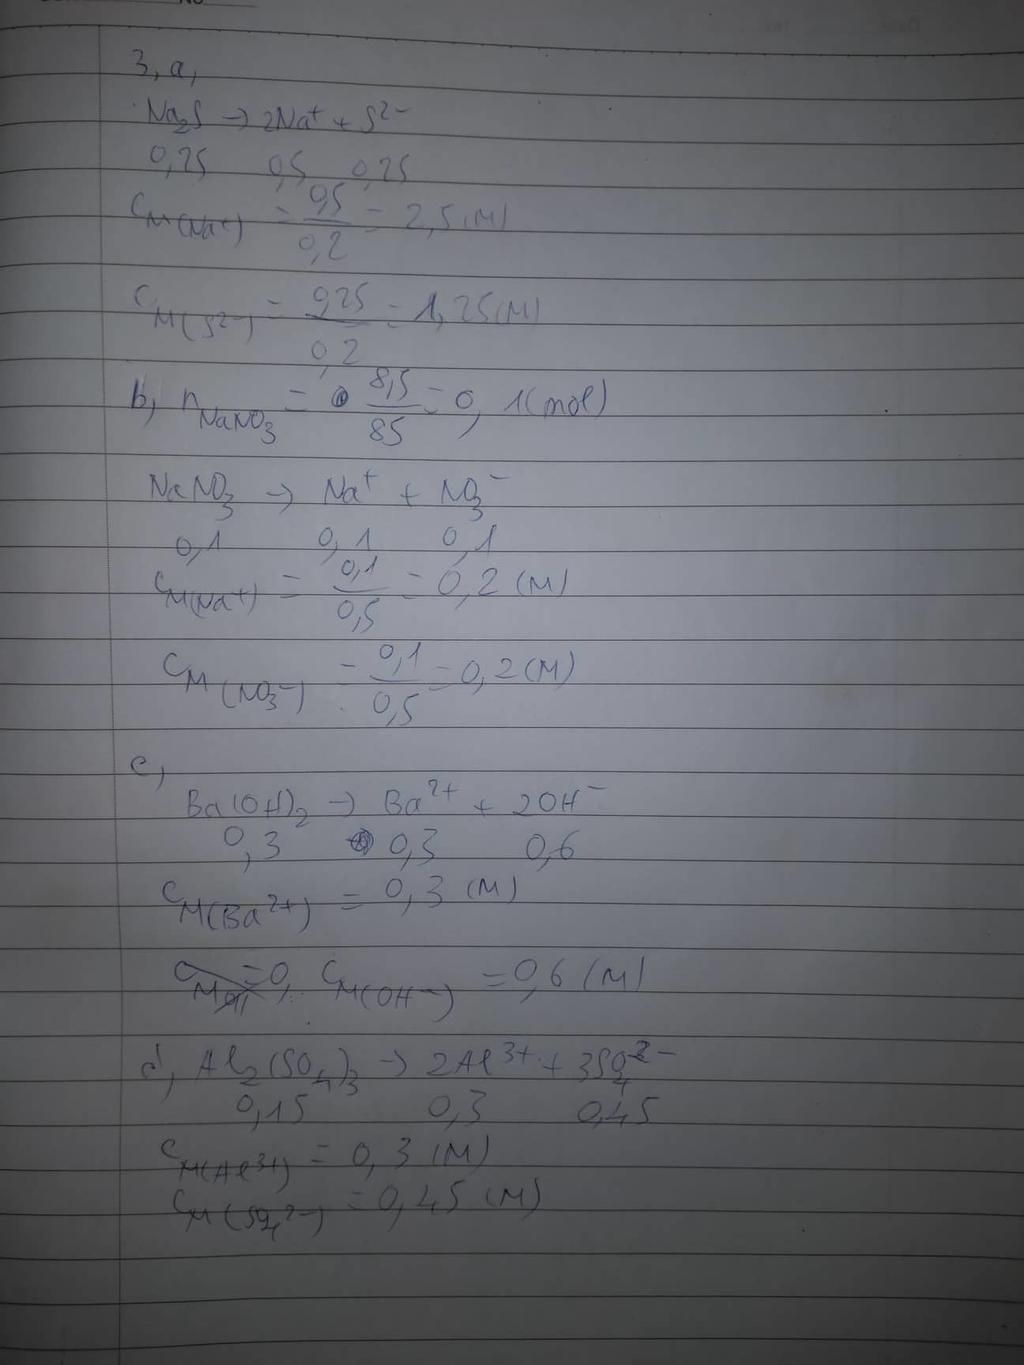 3, a,
Na₂S → 2Na⁺ + S²⁻
0,25 0,5 0,25
C_M(Na⁺) = 0,5/0,2 = 2,5 (M)
C_M(S²⁻) = 0,25/0,2 = 1,25 (M)
b, n_NaNO₃ = 8,5/85 = 0,1 (mol)
NaNO₃ → Na⁺ + NO₃⁻
0,1 0,1 0,1
C_M(Na⁺) = 0,1/0,5 = 0,2 (M)
C_M(NO₃⁻) = 0,1/0,5 = 0,2 (M)
c,
Ba(OH)₂ → Ba²⁺ + 2OH⁻
0,3 0,3 0,6
C_M(Ba²⁺) = 0,3 (M)
C_M(OH⁻) = 0,6 (M)
d, Al₂(SO₄)₃ → 2Al³⁺ + 3SO₄²⁻
0,15 0,3 0,45
C_M(Al³⁺) = 0,3 (M)
C_M(SO₄²⁻) = 0,45 (M)